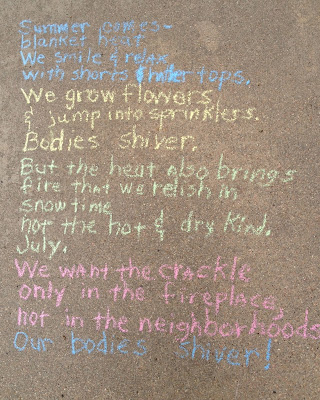 Summer comes-
blanket heat
We smile & relax
with shorts & halter tops.
We grow flowers
& jump into sprinklers.
Bodies shiver.
But the heat also brings
fire that we relish in
snowtime
not the hot & dry kind.
July.
We want the crackle
only in the fireplace,
not in the neighborhoods
Our bodies shiver!